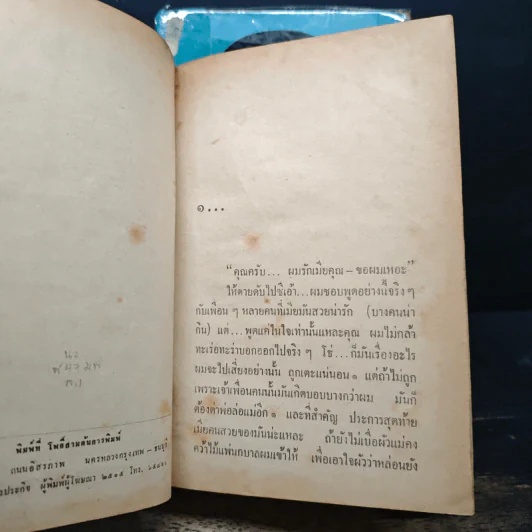 นง
พิมพ์ที่ โพธิ์สามต้นการพิมพ์
ถนนอิสรภาพ นครหลวงกรุงเทพ – ธนบุรี
ผู้พิมพ์ผู้โฆษณา ๒๕๑๕ โทร.
๑...
“คุณครับ... ผมรักเมียคุณ – ขอผมเหอะ”
ให้ตายดับไปซิเอ้า... ผมชอบพูดอย่างนี้จริง ๆ
กับเพื่อน ๆ หลายคนที่เมียมันสวยน่ารัก (บางคนน่า
กิน) แต่...พูดแค่ในใจเท่านั้นแหละคุณ ผมไม่กล้า
ทะเร่อทะร่าบอกออกไปจริง ๆ โธ่... ก็มันเรื่องอะไร
ผมจะไปเสี่ยงอย่างนั้น ถูกเตะแน่นอน ๑ แต่ถ้าไม่ถูก
เพราะเจ้าเพื่อนคนนั้นมันเกิดบอบบางกว่าผม มันก็
ต้องด่าพ่อล่อแม่อีก ๑ และที่สำคัญ ประการสุดท้าย
เมียคนสวยของมันน่ะแหละ ถ้ายังไม่เบื่อผัวแม่คง
คว้าไม้แพ่นกบาลผมเข้าให้ เพื่อเอาใจผัวว่าหล่อนยัง